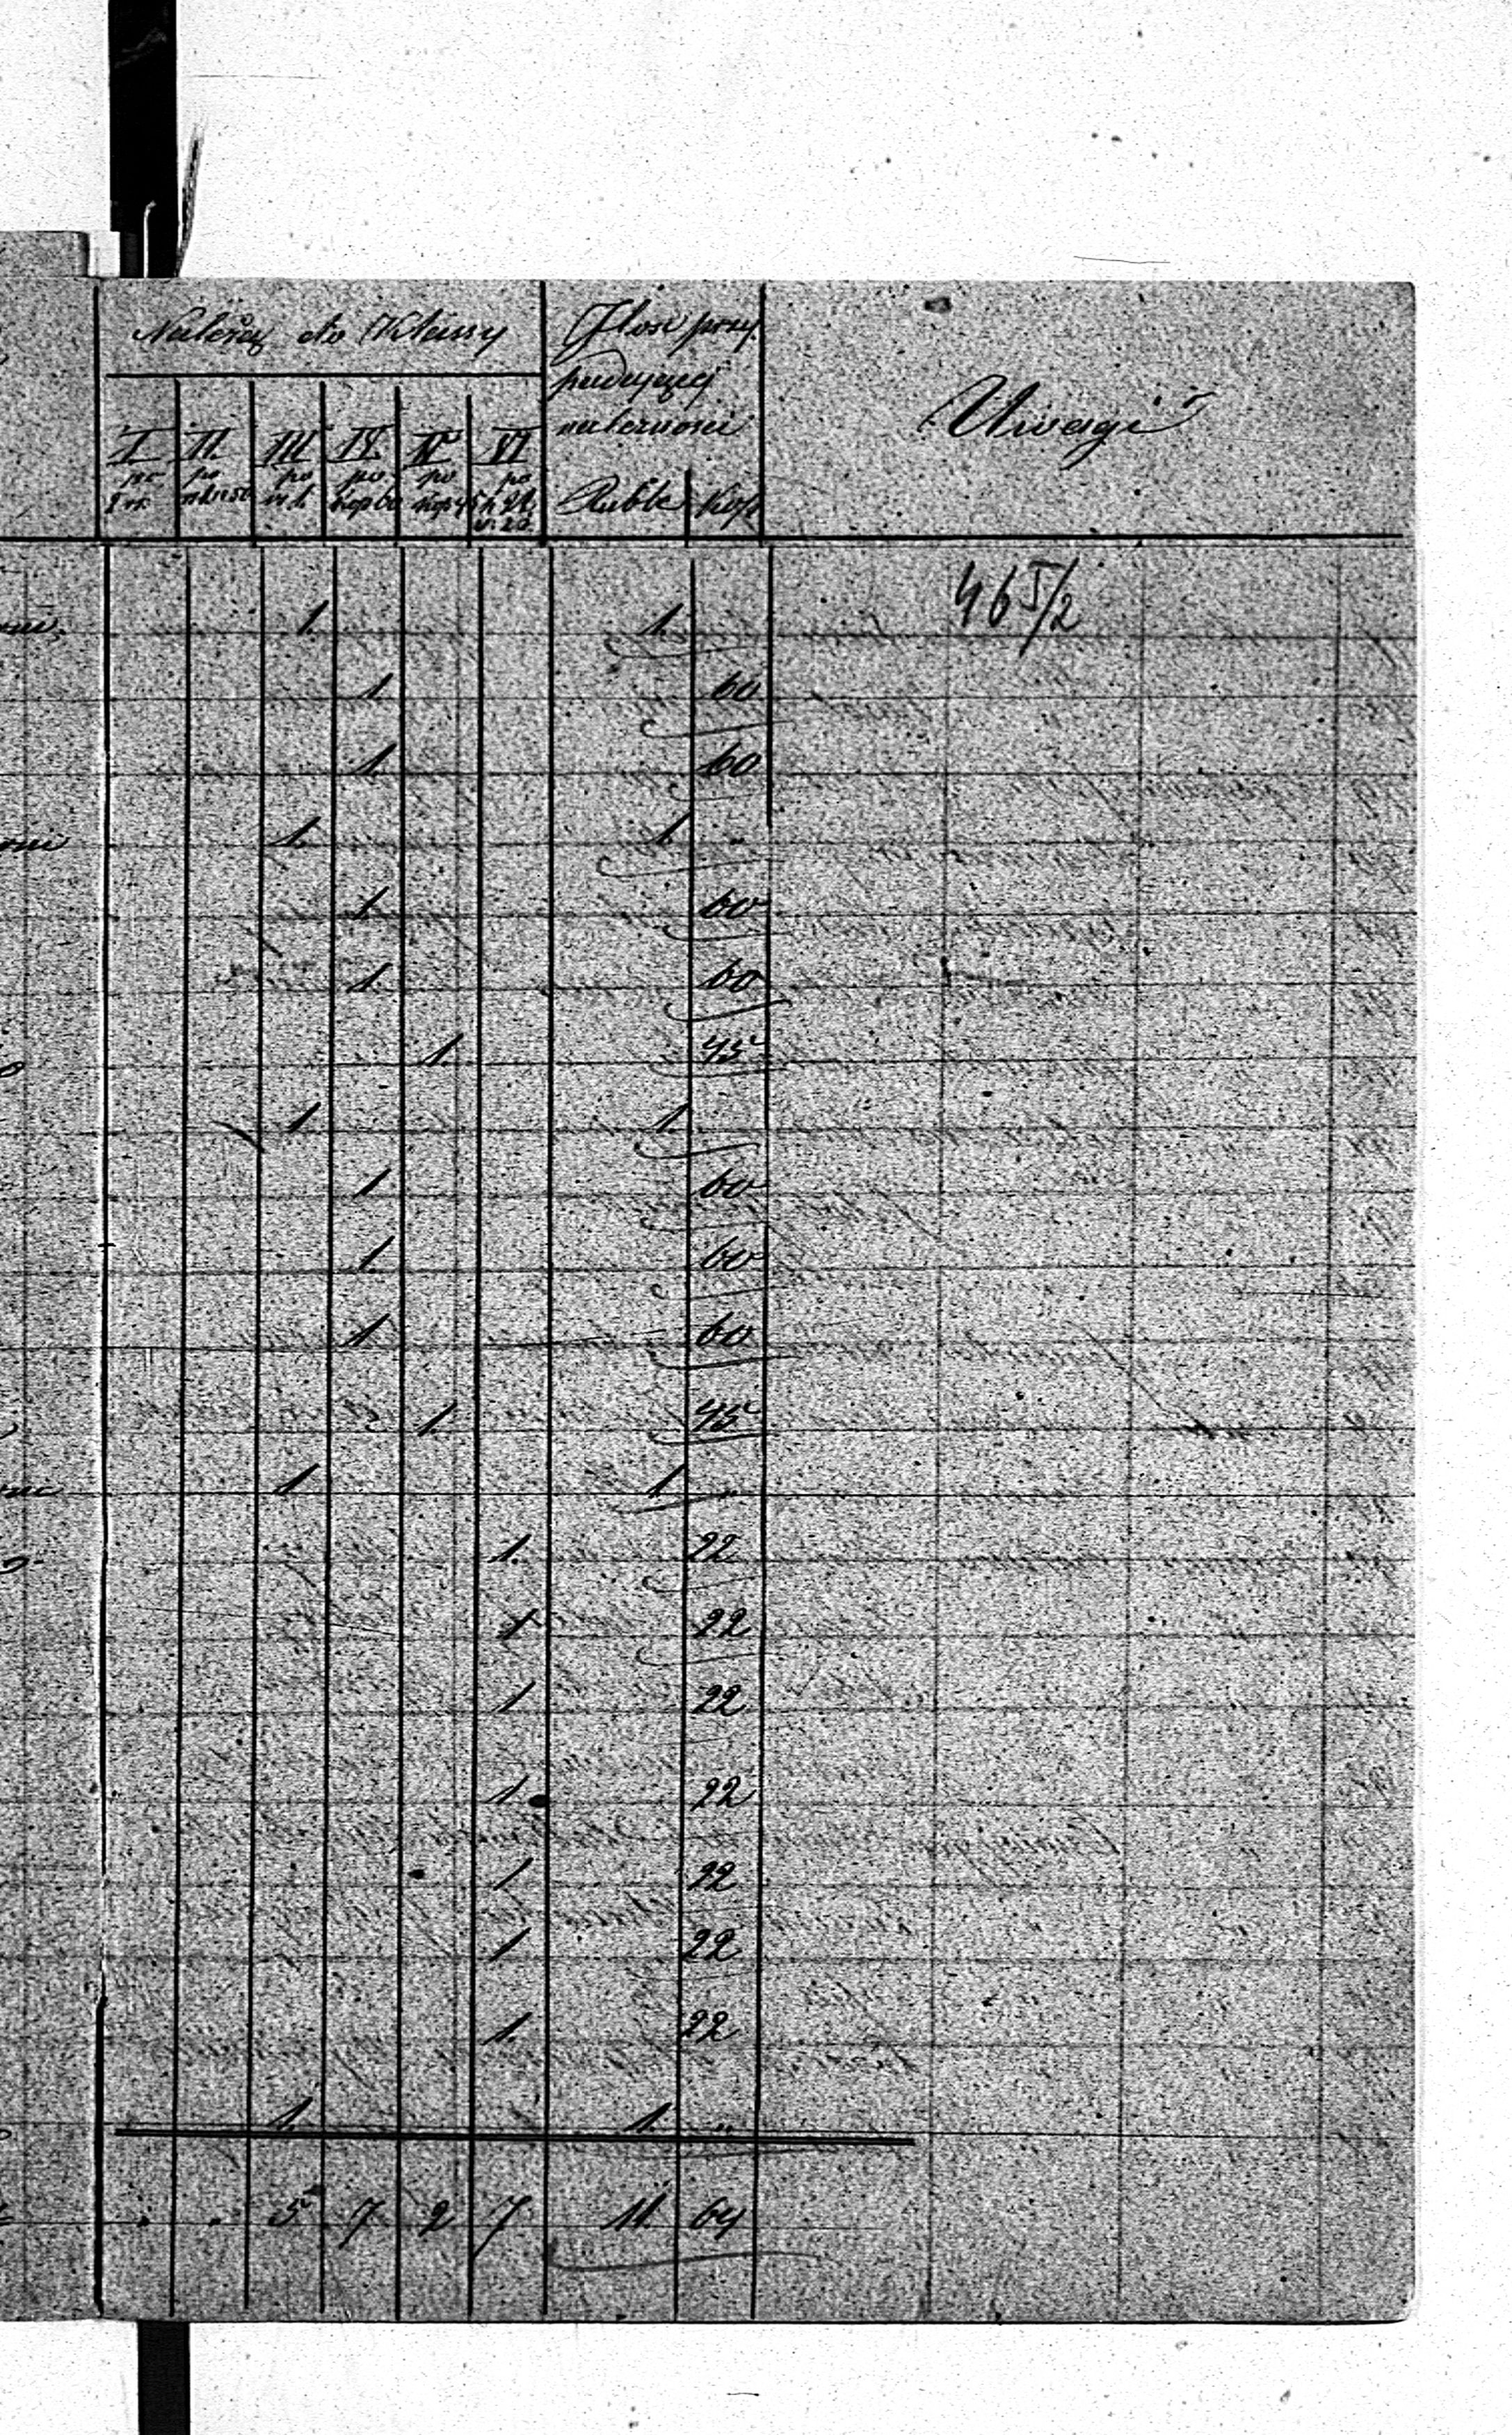 Należą do Klassy
Ilość przy-
padającej
należności
Uwagi
I II. III IV. V VI
po po po po po po
rs. 1 kop 60 kop 45
Ruble Kop
465/2
1. 1.
1 60
1. 60
1. 1. "
1. 60
1. 60
1. 45
1 1.
1 60
1. 60
1 60
1. 45
1 1. "
1. 22
1 22
1 22
1. 22
1 22
1 22
1. 22
1. 1. "
. . 5 7 2 7 11. 64